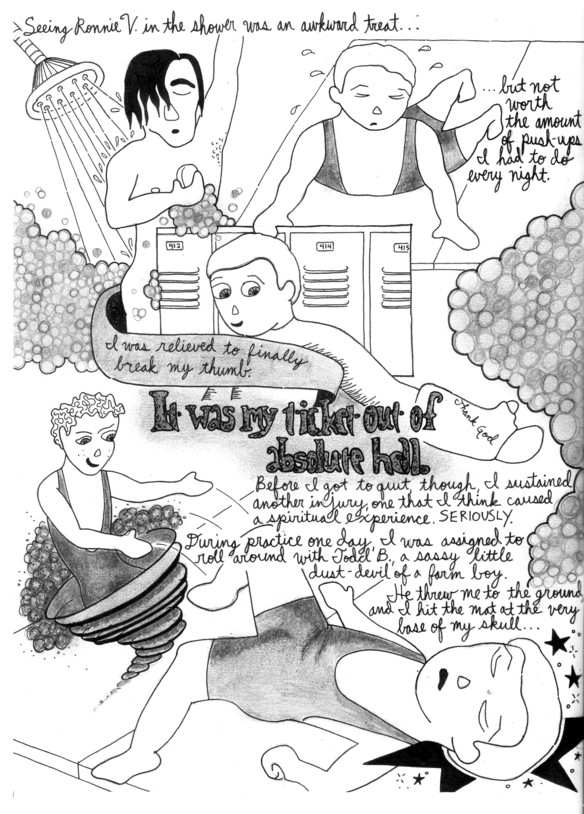 Seeing Ronnie V. in the shower was an awkward treat...
...but not
worth
the amount
of push-ups
I had to do
every night.
412
414
415
I was relieved to finally
break my thumb.
Thank God
It was my ticket out of
absolute hell.
Before I got to quit, though, I sustained
another injury, one that I think caused
a spiritual experience. SERIOUSLY.
During practice one day, I was assigned to
roll around with Todd B., a sassy little
dust-devil of a farm boy.
He threw me to the ground
and I hit the mat at the very
base of my skull...